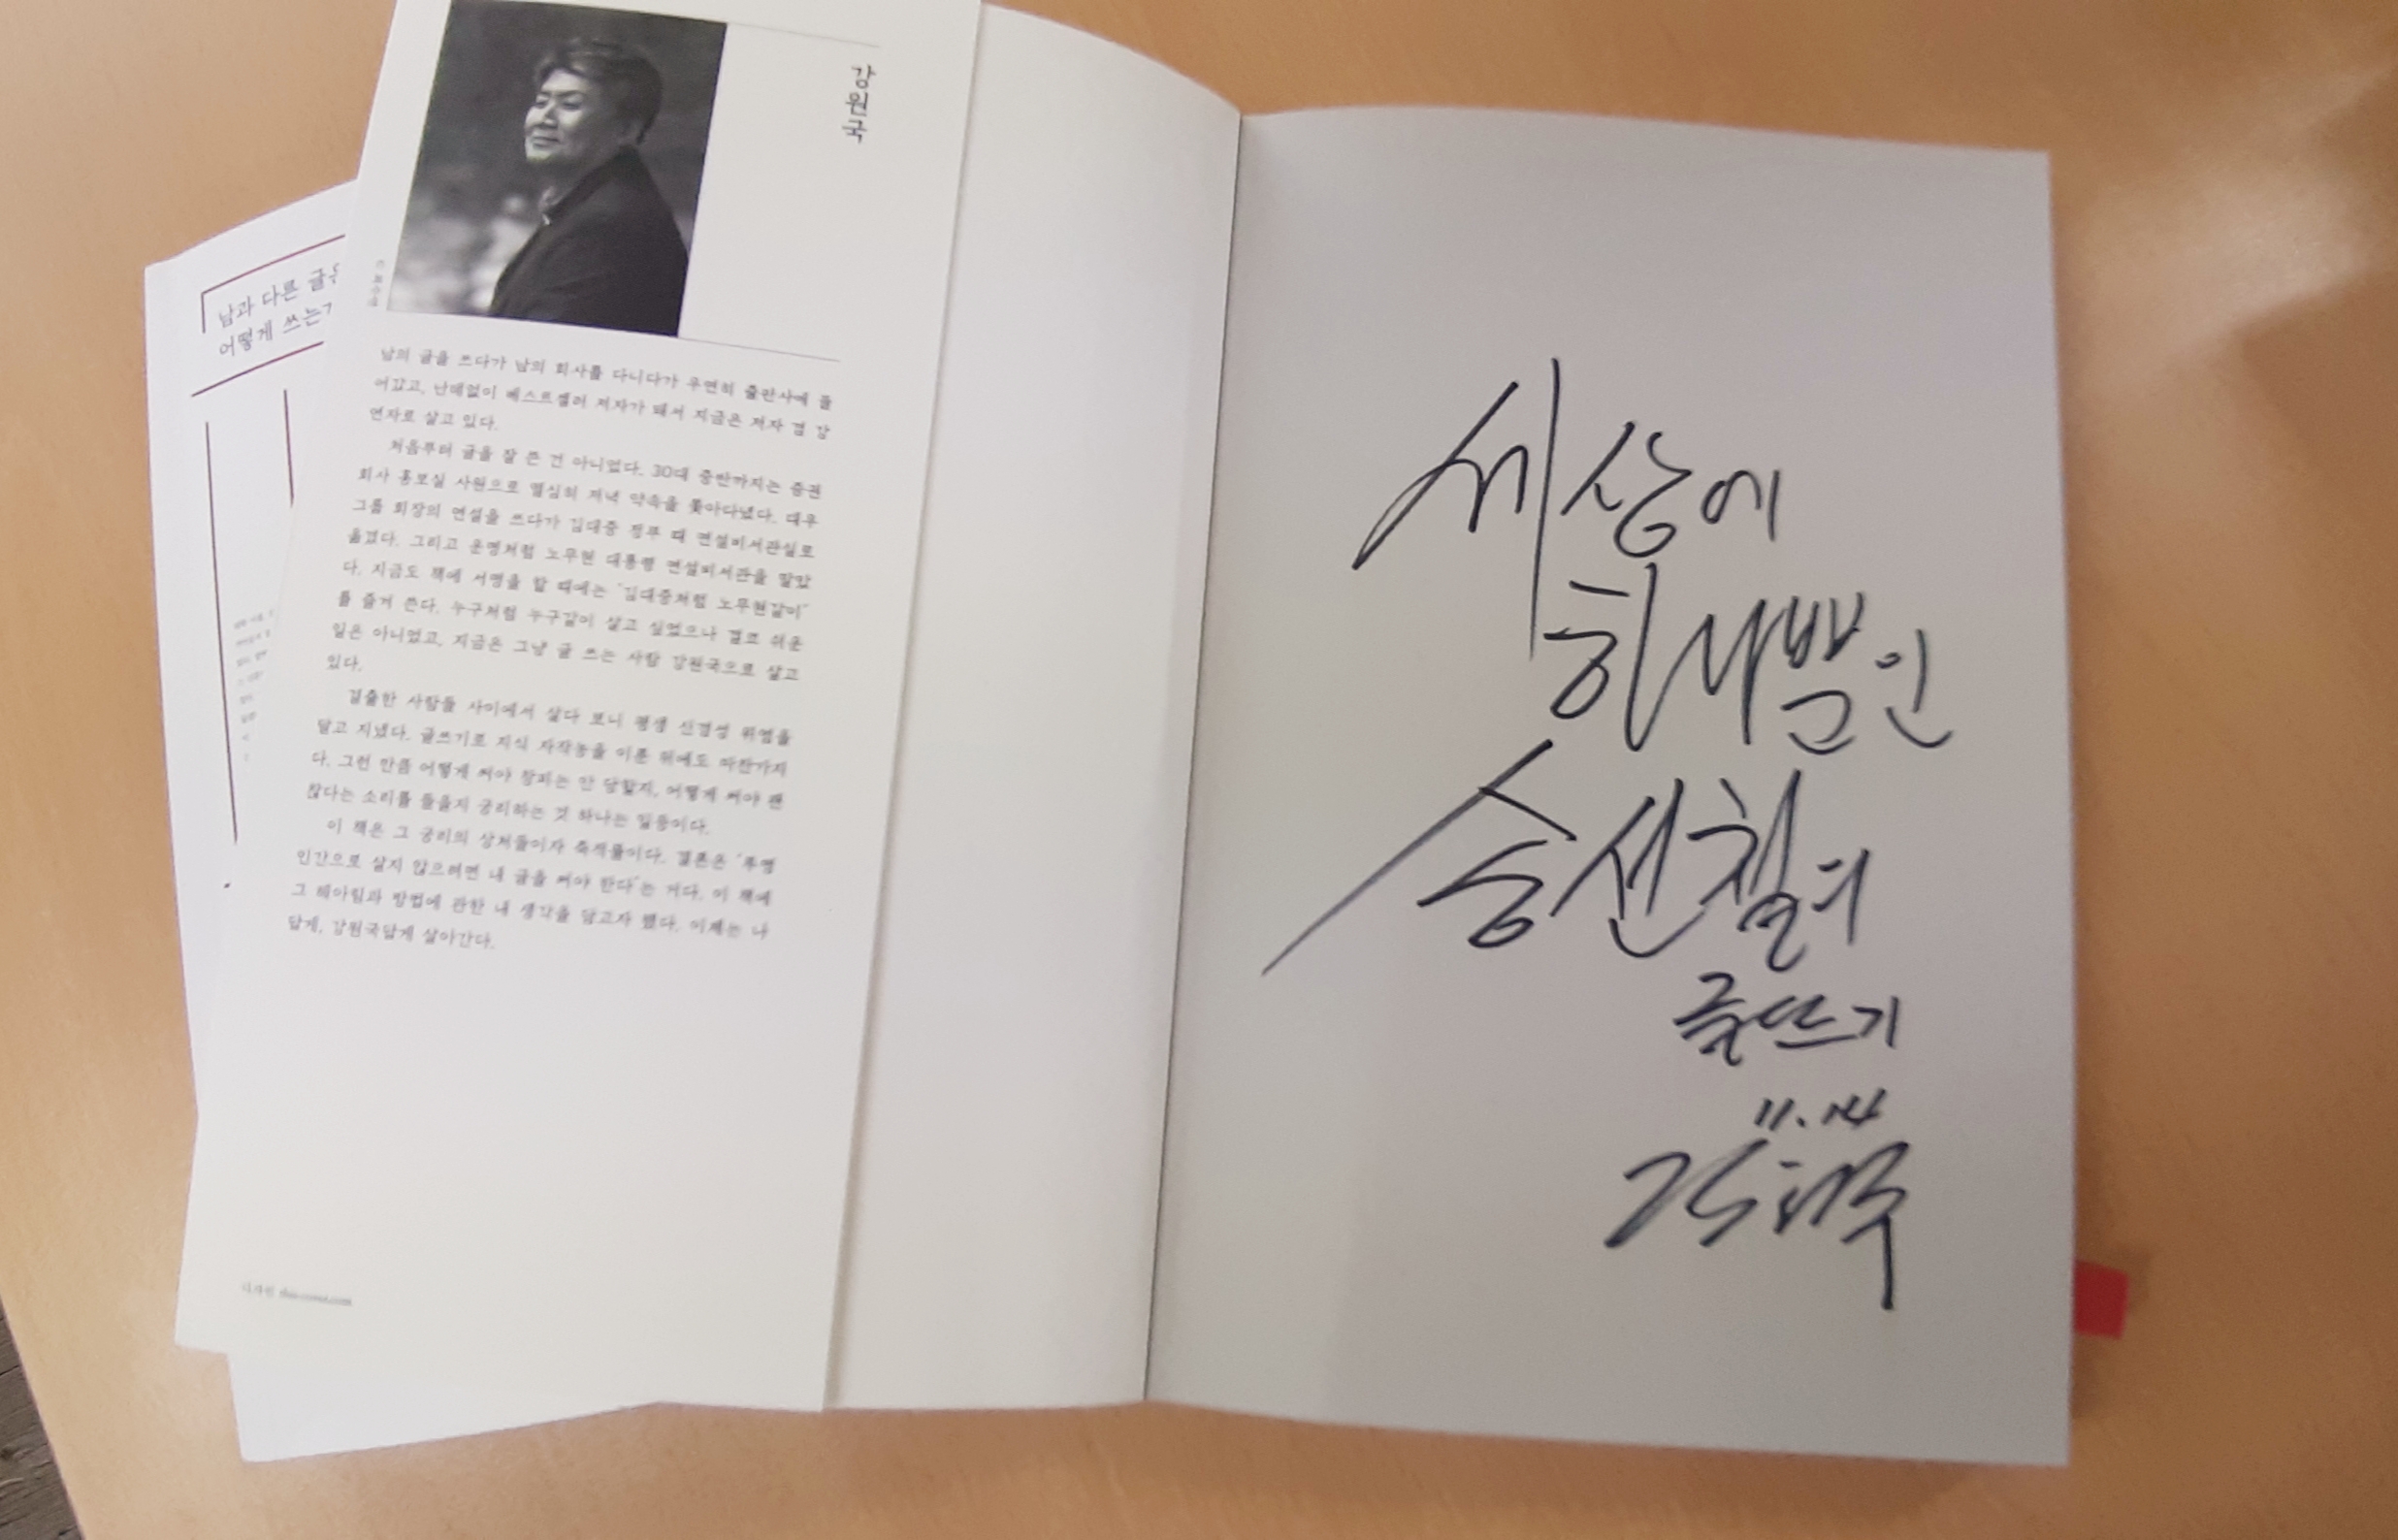 강원국
남과 다른 글은
어떻게 쓰는가
남의 글을 쓰다가 남의 회사를 다니다가 우연히 출판사에 들
어갔고, 난데없이 베스트셀러 저자가 돼서 지금은 저자 겸 강
연자로 살고 있다.
처음부터 글을 잘 쓴 건 아니었다. 30대 중반까지는 증권
회사 홍보실 사원으로 열심히 저녁 약속을 쫓아다녔다. 대우
그룹 회장의 연설을 쓰다가 김대중 정부 때 연설비서관실로
옮겼다. 그리고 운명처럼 노무현 대통령 연설비서관을 맡았
다. 지금도 책에 서명을 할 때에는 ‘김대중처럼 노무현같이’
를 즐겨 쓴다. 누구처럼 누구같이 살고 싶었으나 결코 쉬운
일은 아니었고, 지금은 그냥 글 쓰는 사람 강원국으로 살고
있다.
걸출한 사람들 사이에서 살다 보니 평생 신경성 위염을
달고 지냈다. 글쓰기로 지식 자작농을 이룬 뒤에도 마찬가지
다. 그런 만큼 어떻게 써야 창피는 안 당할지, 어떻게 써야 괜
찮다는 소리를 들을지 궁리하는 것 하나는 일등이다.
이 책은 그 궁리의 상처들이자 축적물이다. 결론은 ‘투명
인간으로 살지 않으려면 내 글을 써야 한다’는 거다. 이 책에
그 헤아림과 방법에 관한 내 생각을 담고자 했다. 이제는 나
답게, 강원국답게 살아간다.
세상에
하나뿐인
송선철의
글쓰기
11. 14
강원국